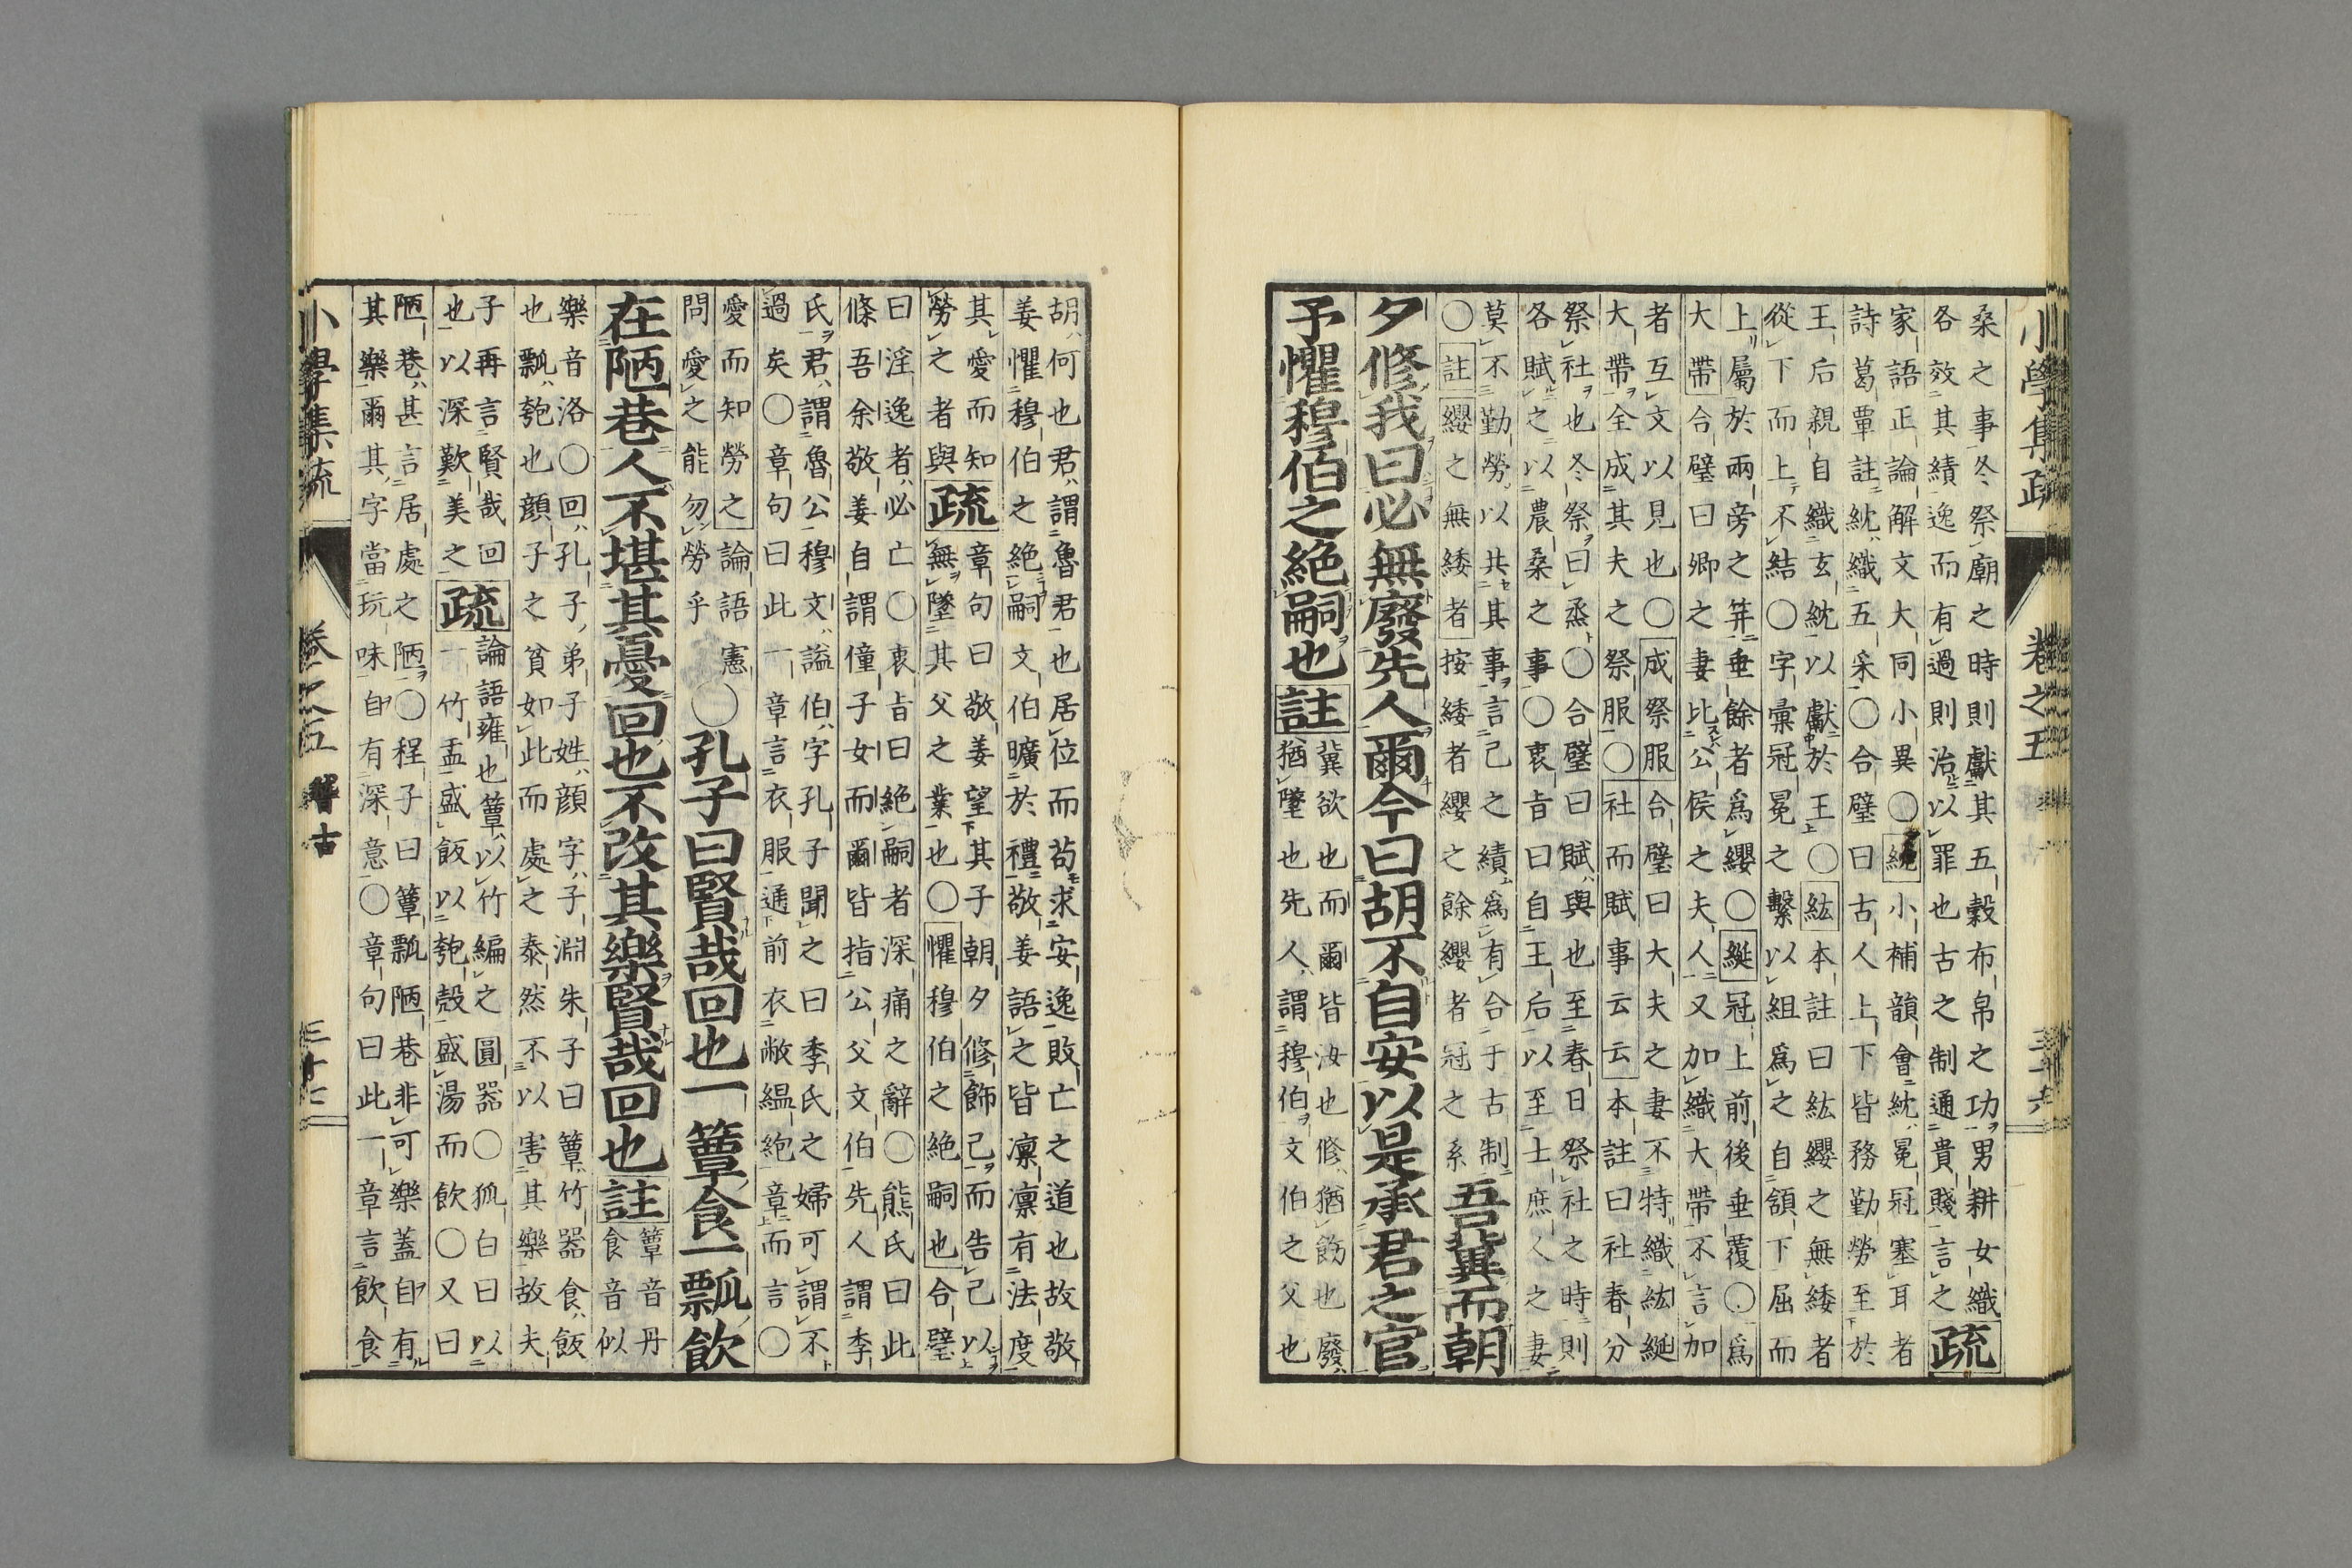 小學集疏 卷之五 三十六
桑之事冬祭廟之時則獻其五穀布帛之功男耕女織
各效其績逸而有過則治以罪也古之制通貴賤言之疏
家語正論解文大同小異〇紞小補韻會紞冕冠塞耳者
詩葛覃註紞織五采一〇合璧曰古人上下皆務勤勞至於
王后親自織玄紞以獻於王〇紘本註曰紘纓之無緌者
從下而上不結〇字彙冠冕之繫以組爲之自頷下屈而
上屬於兩旁之笄垂餘者爲纓〇綖冠上前後垂覆〇爲
大帶合璧曰卿之妻比公侯之夫人又加織大帶不言加
者互文以見也〇成祭服合璧曰大夫之妻不特織紘綖
大帶全成其夫之祭服〇社而賦事云云本註曰社春分
祭社也冬祭曰烝〇合璧曰賦與也至春日祭社之時則
各賦之以農桑之事〇衷旨曰自王后以至士庶人之妻
莫不勤勞以共其事言己之績爲有合于古制
〇註纓之無緌者按緌者纓之餘纓者冠之系
吾冀而朝
夕修我曰必無廢先人爾今曰胡不自安以是承君之官
予懼穆伯之絶嗣也註
冀欲也而爾皆汝也修猶飭也廢
猶墜也先人謂穆伯文伯之父也
胡何也君謂魯君也居位而苟求安逸敗亡之道也故敬
姜懼穆伯之絶嗣文伯曠於禮敬姜語之皆凛凛有法度
其愛而知勞之者與疏
章句曰敬姜望其子朝夕修飾己而告己以
無墜其父之業也〇懼穆伯之絶嗣也合璧
曰淫逸者必亡〇衷旨曰絶嗣者深痛之辭〇熊氏曰此
條吾余敬姜自謂僮子女而爾皆指公父文伯先人謂季
氏君謂魯公穆文謚伯字孔子聞之曰季氏之婦可謂不
過矣〇章句曰此一章言衣服通前衣敝縕絶章而言〇
愛而知勞之論語憲
問愛之能勿勞乎
〇孔子曰賢哉回也一簞食一瓢飲
在陋巷人不堪其憂回也不改其樂賢哉回也註
簞音丹
食音似
樂音洛〇回孔子弟子姓顔字子淵朱子曰簞竹器食飯
也瓢匏也顔子之貧如此而處之泰然不以害其樂故夫
子再言賢哉回
也以深歎美之疏
論語雍也簞以竹編之圓器〇狐白曰以
一竹盂盛飯以匏殼盛湯而飲〇又曰
陋巷甚言居處之陋〇程子曰簞瓢陋巷非可樂蓋自有
其樂爾其字當玩味自有深意〇章句曰此一章言飲食
小學集疏 卷之五 稽古 三十七